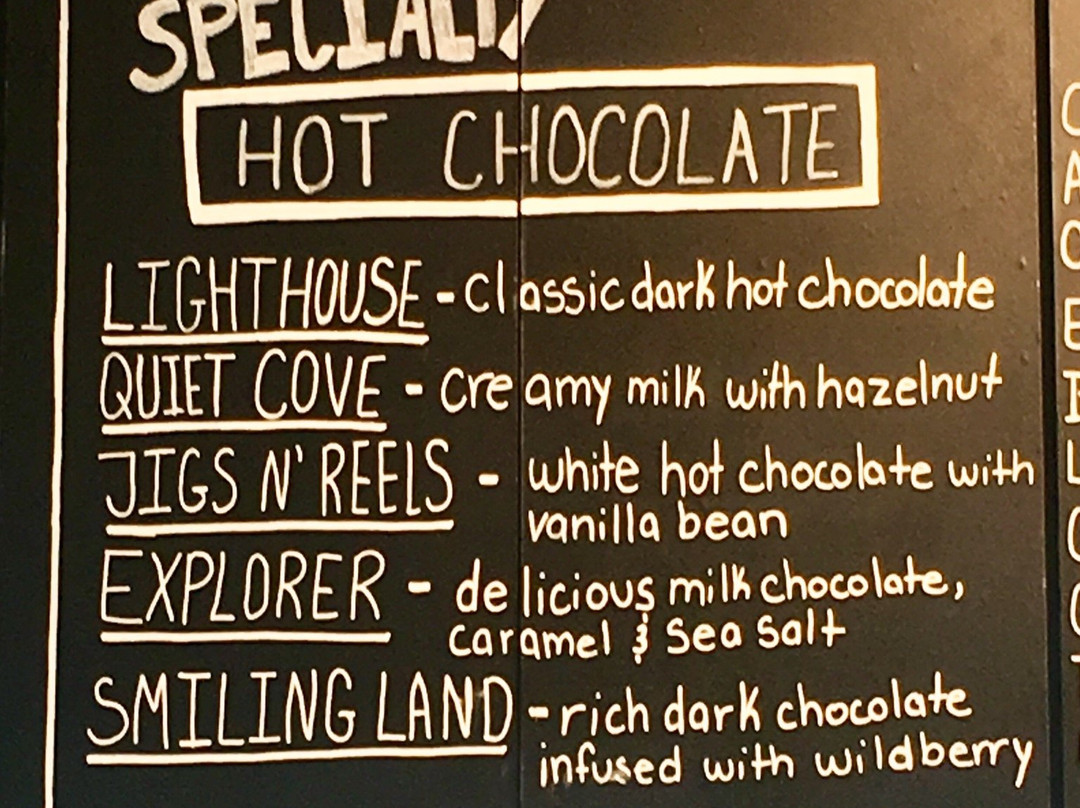 SPECIALTY
HOT CHOCOLATE
LIGHTHOUSE - classic dark hot chocolate
QUIET COVE - creamy milk with hazelnut
JIGS N' REELS - white hot chocolate with
vanilla bean
EXPLORER - delicious milk chocolate,
caramel & sea salt
SMILING LAND - rich dark chocolate
infused with wildberry